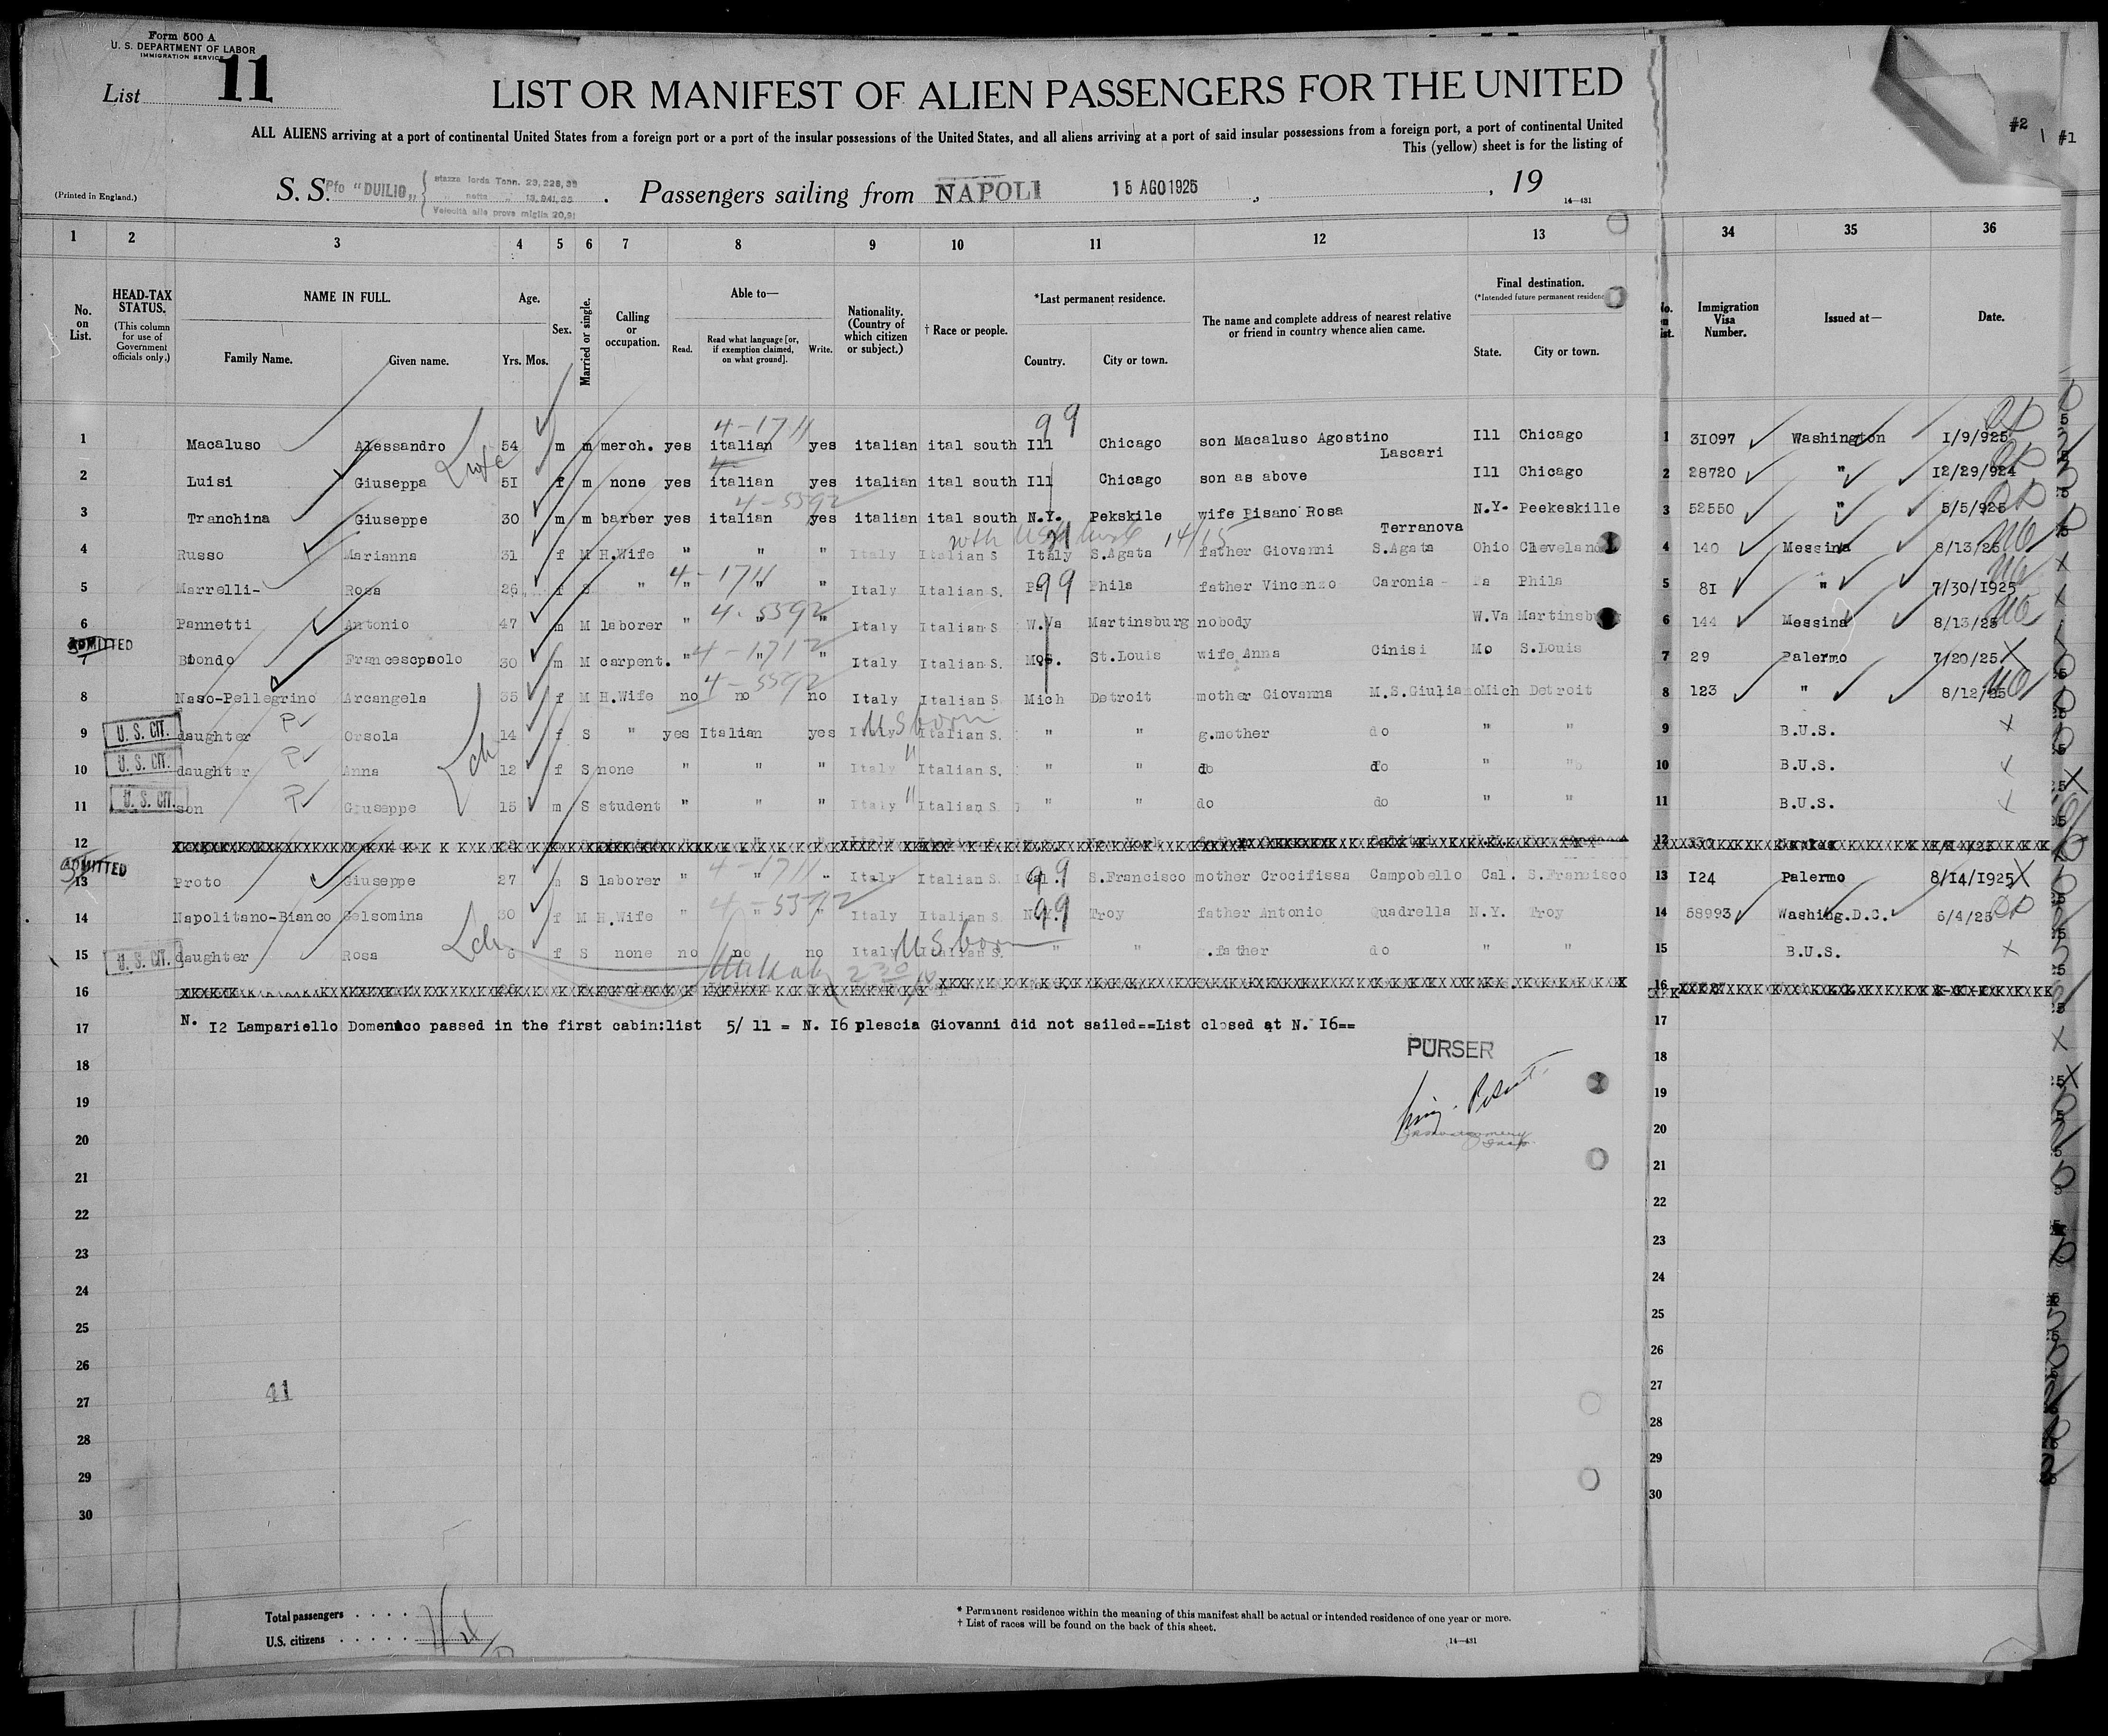 Form 500 A
U. S. DEPARTMENT OF LABOR
IMMIGRATION SERVICE
List 11
LIST OR MANIFEST OF ALIEN PASSENGERS FOR THE UNITED
ALL ALIENS arriving at a port of continental United States from a foreign port or a port of the insular possessions of the United States, and all aliens arriving at a port of said insular possessions from a foreign port, a port of continental United
This (yellow) sheet is for the listing of
#2 #1
(Printed in England.)
S. S. Pfo "DUILIO" stazza lorda Tonn. 23,228,39 . Passengers sailing from NAPOLI 15 AGO 1925 , , 19
" netta " 13,941,35
Velocità alle prove miglia 20,91
14—431
1 2 3 4 5 6 7 8 9 10 11 12 13 34 35 36
No. on List.
HEAD-TAX STATUS. (This column for use of Government officials only.)
NAME IN FULL. Family Name. Given name.
Age. Yrs. Mos.
Sex.
Married or single.
Calling or occupation.
Able to— Read. Read what language [or, if exemption claimed, on what ground]. Write.
Nationality. (Country of which citizen or subject.)
† Race or people.
*Last permanent residence. Country. City or town.
The name and complete address of nearest relative or friend in country whence alien came.
Final destination. (*Intended future permanent residence) State. City or town.
Immigration Visa Number.
Issued at—
Date.
4-1711 99
1 Macaluso Alessandro 54 m m merch. yes italian yes italian ital south Ill Chicago son Macaluso Agostino Lascari Ill Chicago 1 31097 Washington 1/9/925
wife
2 Luisi Giuseppa 51 f m none yes italian yes italian ital south Ill Chicago son as above Ill Chicago 2 28720 " 12/29/924
4-5592
3 Tranchina Giuseppe 30 m m barber yes italian yes italian ital south N.Y. Pekskile wife Pisano Rosa Terranova N.Y- Peekeskille 3 52550 " 5/5/925
14/15
4 Russo Marianna 31 f M H.Wife " " " Italy Italian S Italy S.Agata father Giovanni S.Agata Ohio Cleveland 4 140 Messina 8/13/25
4-1711 99
5 Marrelli- Rosa 26 f S " " " " Italy Italian S. Phila father Vincenzo Caronia - Pa Phila 5 81 " 7/30/1925
4-5592
6 Pannetti Antonio 47 m M laborer " " " Italy Italian S W.Va Martinsburg nobody W.Va Martinsburg 6 144 Messina 8/13/25
ADMITTED 4-1712
7 Biondo Francescpaolo 30 m M carpent. " " " Italy Italian S. Mo. St.Louis wife Anna Cinisi Mo S.Louis 7 29 Palermo 7/20/25
4-5592
8 Naso-Pellegrino Arcangela 35 f M H.Wife no no no Italy Italian S. Mich Detroit mother Giovanna M.S.Giuliano Mich Detroit 8 123 " 8/12/25
US born
9 U. S. CIT. daughter Orsola 14 f S " yes Italian yes Italy Italian S. " " g.mother do " " 9 B.U.S.
ch
10 U. S. CIT. daughter Anna 12 f S none " " " Italy Italian S. " " do do " " 10 B.U.S.
11 U. S. CIT. son Giuseppe 15 m S student " " " Italy Italian S " " do do " " 11 B.U.S.
12 12
ADMITTED 4-1711 99
13 Proto Giuseppe 27 m S laborer " " " Italy Italian S. Cal. S.Francisco mother Crocifissa Campobello Cal. S.Francisco 13 124 Palermo 8/14/1925
99
14 Napolitano-Bianco Gelsomina 30 f M H.Wife " " " Italy Italian S. N.Y. Troy father Antonio Quadrella N.Y. Troy 14 58993 Washing.D.C. 6/4/25
ch US born
15 U. S. CIT. daughter Rosa 6 f S none no no no Italy Italian S. " " g.father do " " 15 B.U.S.
16 16
17 N. 12 Lampariello Domenico passed in the first cabin:list 5/ 11 = N. 16 plescia Giovanni did not sailed==List closed at N. 16== 17
PURSER
18 18
19 19
20 20
21 21
22 22
23 23
24 24
25 25
26 26
41
27 27
28 28
29 29
30 30
Total passengers . . . .
U.S. citizens . . . . .
* Permanent residence within the meaning of this manifest shall be actual or intended residence of one year or more.
† List of races will be found on the back of this sheet.
14—431